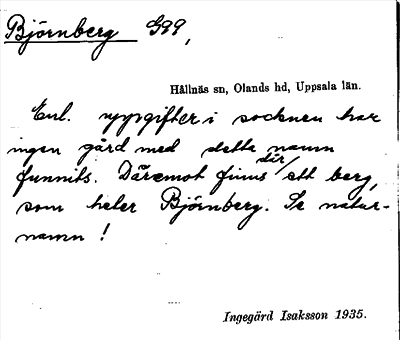 Björnberg G99,
Hållnäs sn, Olands hd, Uppsala län.
Enl. uppgifter i socknen har
ingen gård med detta namn
funnits. Däremot finns där/ett berg,
som heter Björnberg. Se natur-
namn!
Ingegärd Isaksson 1935.